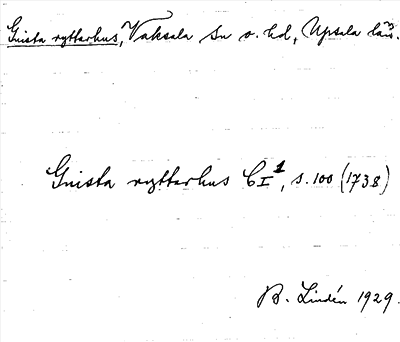 Gnista ryttarhus, Vaksala sn o. hd, Upsala län.
Gnista ryttarhus C I 1, s. 100 (1738)
B. Lindén 1929.